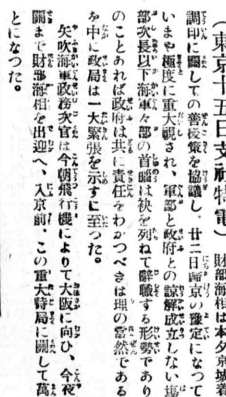 (東京十五日支社特電) 財部海相は本夕京城着
調印に關しての善後策を協議し、廿二日歸京の豫定になつて
いまや極度に重大視され、軍部と政府との諒解成立しない塲
部次長以下海軍々部の首腦は袂を列ねて辭職する形勢であり
のことあれば政府は共に責任をわかつべきは理の當然である
を中に政局は一大緊張を示すに至つた。
矢吹海軍政務次官は今朝飛行機によりて大阪に向ひ、今夜
關まで財部海相を出迎へ、入京前、この重大時局に關して萬
とになつた。